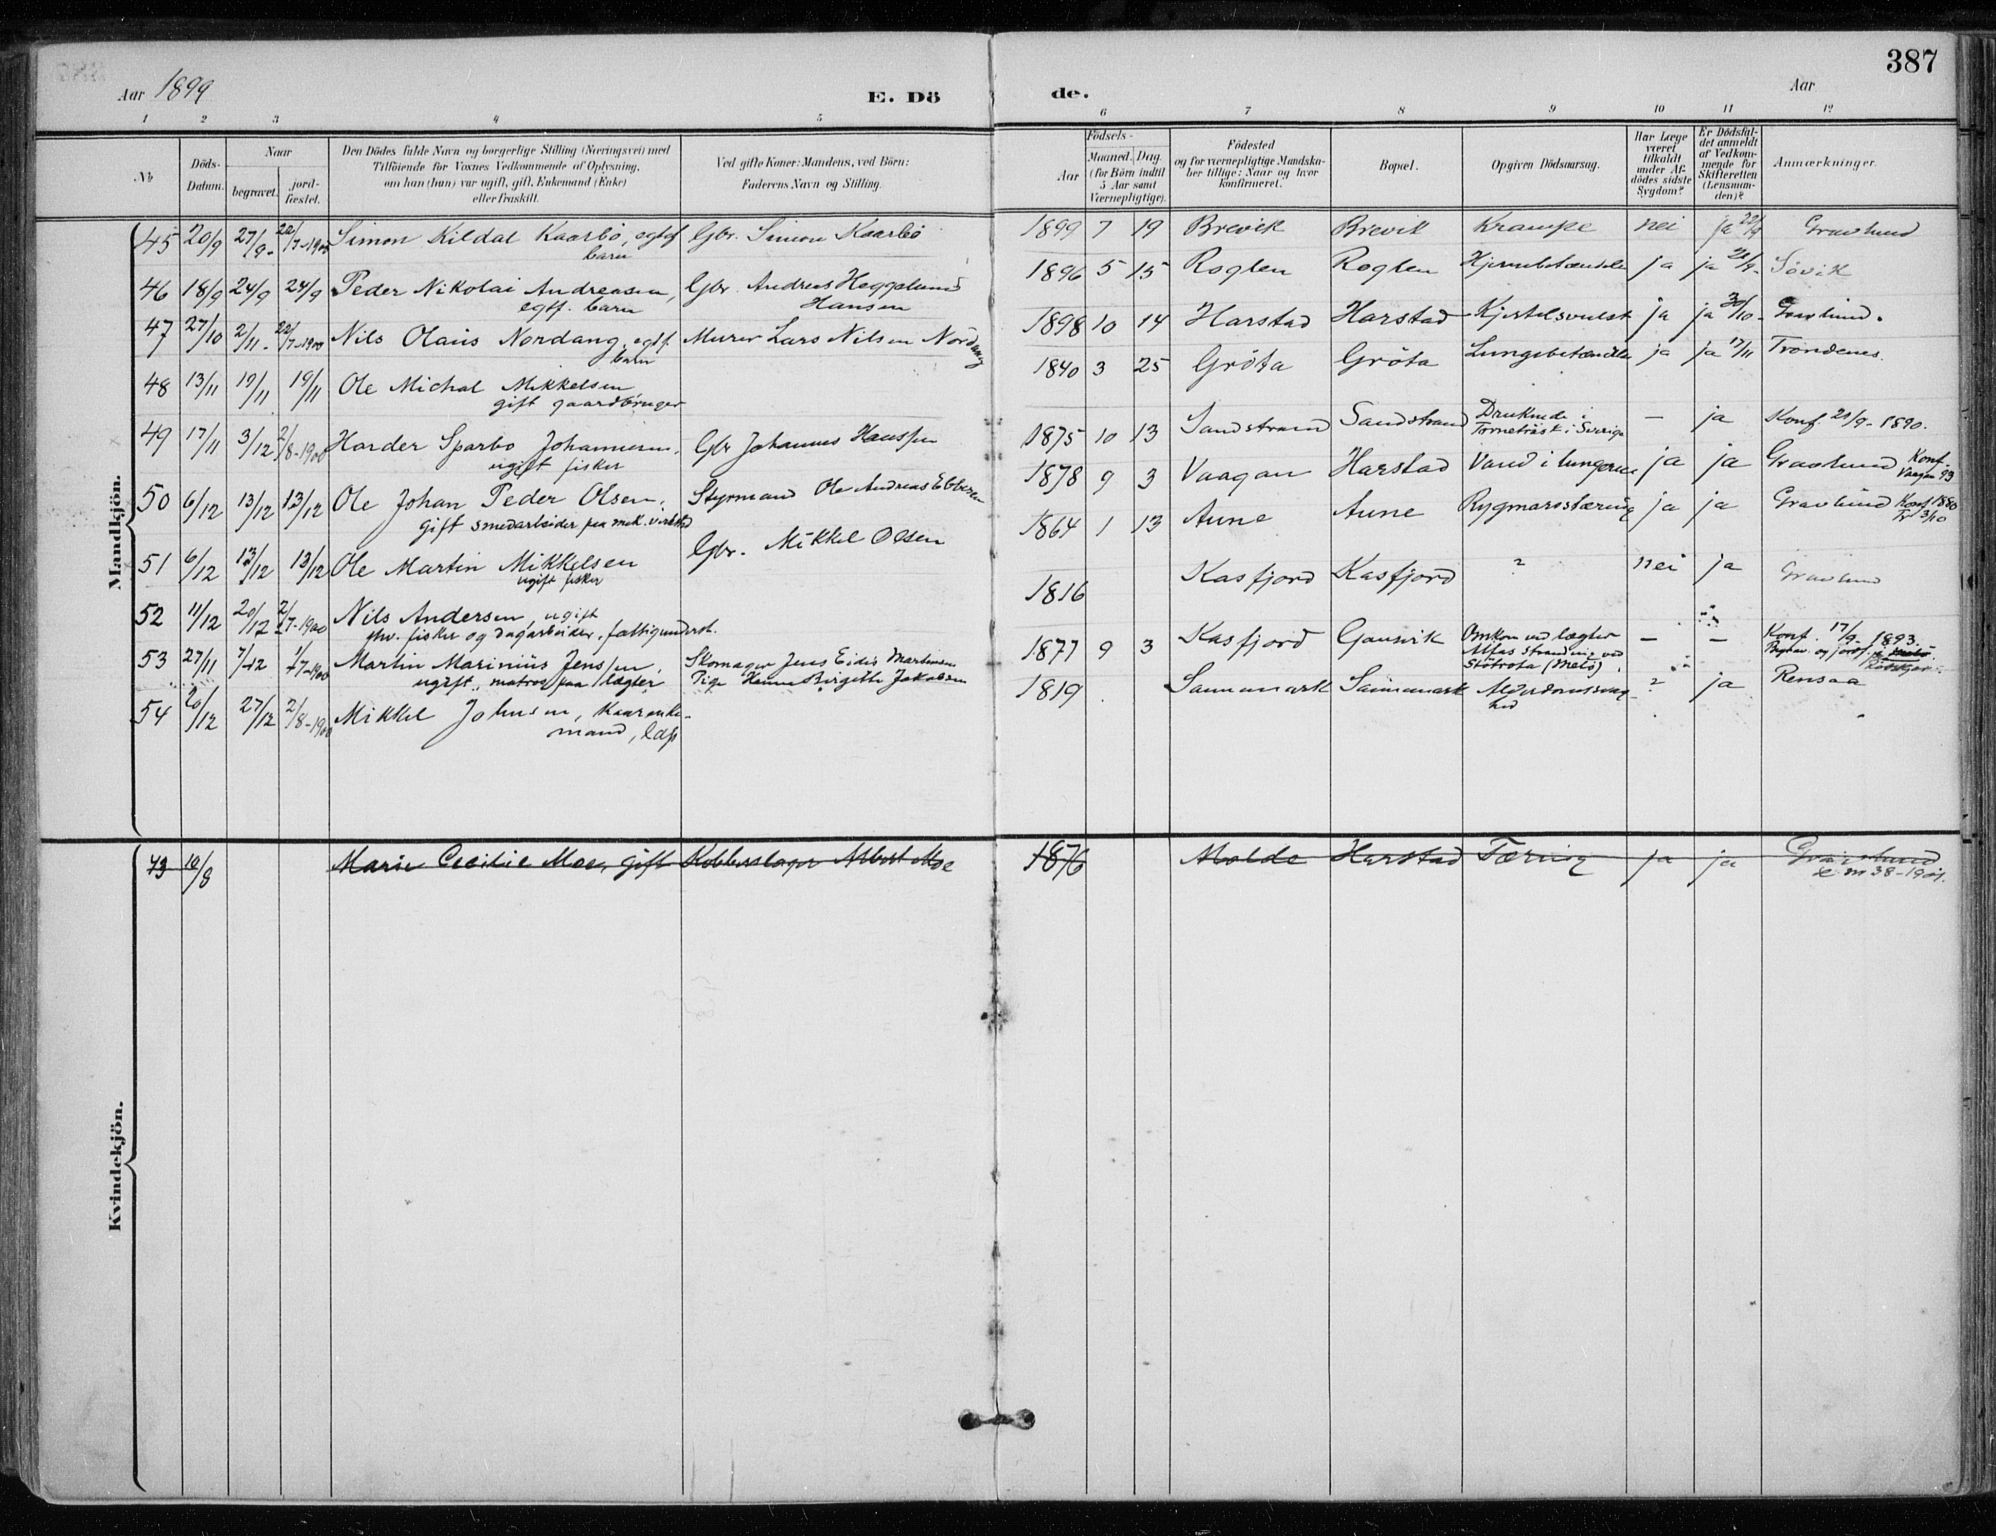 387
Aar 1899
E. Dö
de.
Aar
1 2 3 4 5 6 7 8 9 10 11 12
No
Döds-Datum.
Naar
begravet.
jord-fæstet.
Den Dödes fulde Navn og borgerlige Stilling (Næringsvei) med
Tilföiende for Voxnes Vedkommende af Oplysning,
om han (hun) var ugift, gift, Enkemand (Enke)
eller fraskilt.
Ved gifte Koner: Mandens, ved Börn:
Faderens Navn og Stilling.
Födsels-
Aar
Maaned. Dag.
(for Börn indtil
5 Aar samt
Værnepligtige).
Födested
og for værnepligtige Mandska-
ber tillige: Naar og hvor
konfirmeret.
Bopæl.
Opgiven Dödsaarsag.
Har Læge
været
tilkaldt
under Af-
dödes sidste
Sygdom?
Er Dödsfal-
det anmeldt
af Vedkom-
mende for
Skifteretten
(Lensman-
den)?
Anmærkninger.
Mandkjön.
45 20/9 27/9- 22/7-1900 Simon Kildal Kaarbö, egtef. Gbr. Simon Kaarbö 1899 7 19 Brevik Brevik Krampe nei ja 22/9 Gravlund
barn
46 18/9 24/9 24/9 Peder Nikolai Andreasen, Gbr. Andreas Heggelund 1896 5 15 Roglen Roglen Hjernebetændelse ja ja 21/9- Sövik
egtf. barn Hansen
47 27/10 2/11- 22/7-1900 Nils Olaus Nordang, egtf. Murer Lars Nilsen Nordang 1898 10 14 Harstad Harstad Kjertelsvulst ja ja 30/10- Gravlund.
barn
48 13/11 19/11 19/11 Ole Michal Mikkelsen 1840 3 25 Gröta Gröta Lungebetændelse ja ja 17/11 Trondenes.
gift gaardbruger
49 17/11 3/12 2/8-1900 Harder Sparbo Johannesen, Gbr Johannes Hanssen 1875 10 13 Sandstrand Sandstrand Druknede i — ja Konf. 21/9-1890.
ugift fisker Torneträsk i Sverige
50 6/12 13/12 13/12 Ole Johan Peder Olsen, Styrmand Ole Andreas Ebbesen 1878 9 3 Vaagan Harstad Vand i lungerne ja ja Gravlund Konf. Vaagan 93
gift smedarbeider paa mek. verksted
51 6/12 13/12 13/12 Ole Martin Mikkelsen Gbr. Mikkel Olsen 1864 1 13 Aune Aune Rygmarvstæring ja ja Gravlund Konf 1880 Tr 3/10
ugift fisker
52 11/12 20/12 2/7-1900 Nils Andersen, ugift 1816 Kasfjord Kasfjord ? nei ja Gravlund
fhv. fisker og dagarbeider, fattigunderst.
53 27/11 7/12 1/7-1900 Martin Marinius Jenssen, Skomager Jens Eidis Martinsen 1877 9 3 Kasfjord Gansvik Omkom ved lægter — — Konf. 17/9-1893.
ugift, matros paa lægter Pige Hanna Birgitte Jakobsen Alfas stranding ved
Stötrota (Melö).
54 20/12 27/12 2/8-1900 Mikkel Johnsen, kaarenke- 1819 Sammemark Sammemark Alderdomssvag- ? ja Rensaa
mand, lap hed
Kvindekjön.
73 10/8 Marie Cecilie Moe, gift Kobberslager Albert Moe 1876 Molde Harstad Tæring ja ja Gravlund
38-1901.